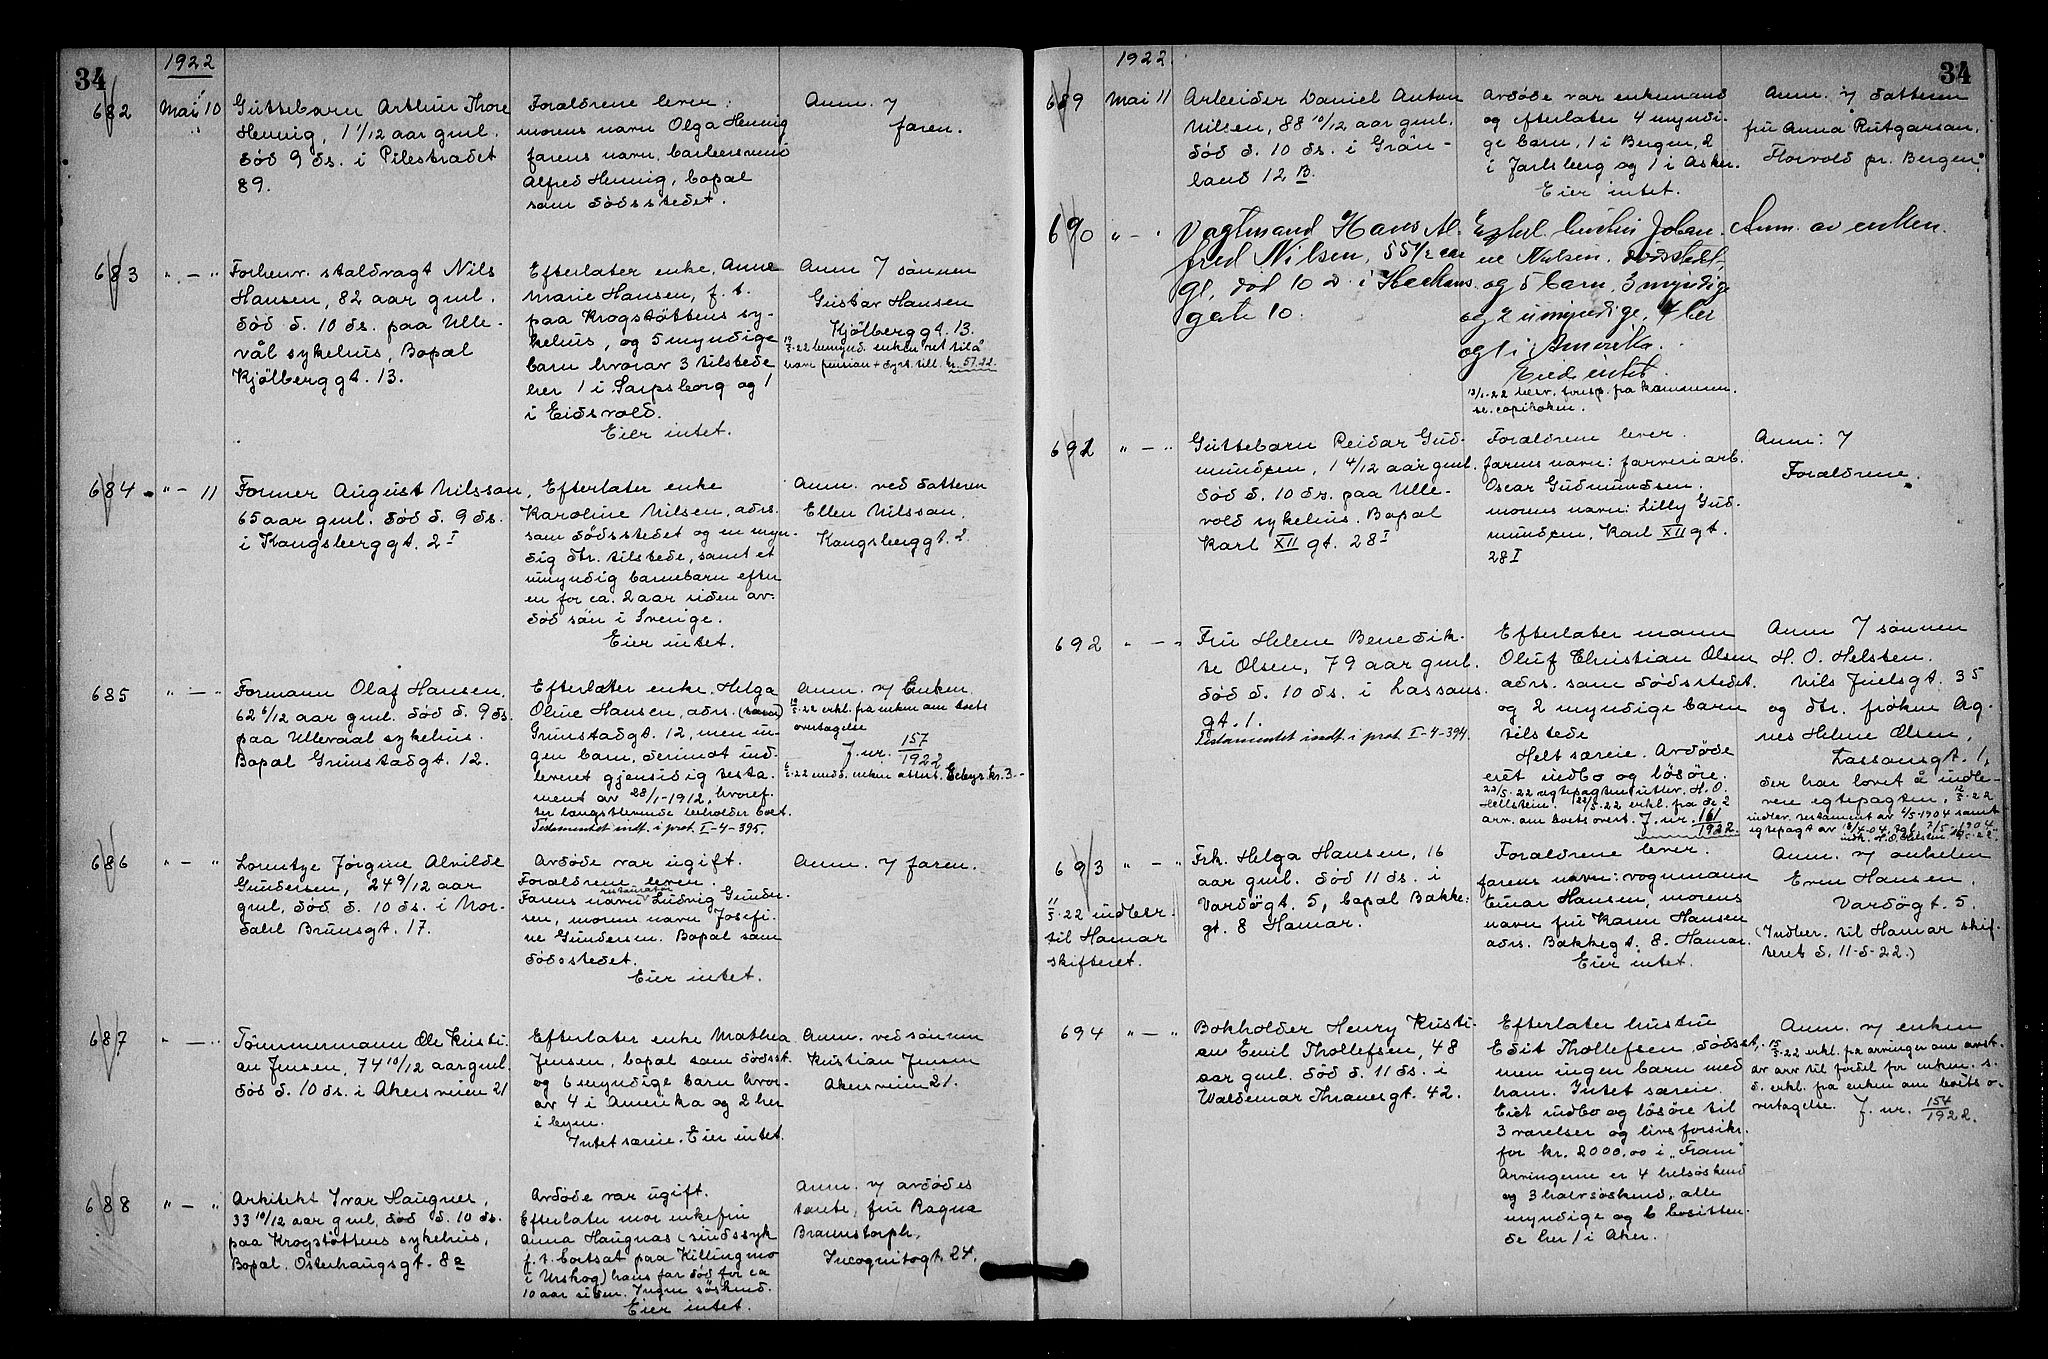 34
1922
682
Mai 10
Guttebarn Arthur Thore
Hennig, 1 1/12 aar gml.
död 9 ds. i Pilestrædet
89.
Forældrene lever:
morens navn Olga Hennig
farens navn
Alfred Hennig, bopæl
som dödsstedet.
Anm. v/
faren.
683
" - "
Forhenv. staldvagt Nils
Hansen, 82 aar gml.
död d. 10 ds. paa Ulle-
vål sykehus, Bopæl
Kjölberggt. 13.
Efterlater enke, Anne
Marie Hansen, f. t.
paa Krogstöttens sy-
kehus, og 5 myndige
barn hvorav 3 tilstede
her 1 i Sarpsborg og 1
i Eidsvold.
Eier intet.
Anm v/ sönnen
Gustav Hansen
Kjölberggt. 13.
19/7-22 bemynd. enken ret til å
hæve pension + dyrt. till. kr. 57.22
684
" - 11
Former August Nilsson,
65 aar gml. död d. 9 ds.
i Kongsberggt. 2 I
Efterlater enke
Karoline Nilsen, adrs.
som dödsstedet og en myn-
dig dtr. tilstede, samt et
umyndig barnebarn efter
en for ca. 2 aar siden av-
död sön i Sverige.
Eier intet.
Anm. ved datteren
Ellen Nilsson,
Kongsberggt. 2.
685
" - "
Formann Olaf Hansen,
62 6/12 aar gml. död d. 9 ds.
paa Ullevaal sykehus.
Bopæl Grimstadgt. 12.
Efterlater enke, Helga
Oline Hansen, adrs.
Grimstadgt. 12, men in-
gen barn, derimot ind-
leveret gjensidig testa-
ment av 28/1-1912, hvoref-
ter længstlevende beholder boet.
Testamentet indt. i prot. I-4-395.
Anm. v/ Enken.
5-22 erkl. fra enken om boets
overtagelse
J. nr. 157/1922
5-22 medd. enken attest. Gebyr kr. 3.-
686
" - "
Lorentze Jørgine Alvilde
Gundersen, 24 9/12 aar
gml. död d. 10 ds. i Nor-
dahl Brunsgt. 17.
Avdöde var ugift.
Forældrene lever.
Farens navn restauratör Ludvig Gunder-
sen, morens navn Josefi-
ne Gundersen. Bopæl som
dödsstedet.
Eier intet.
Anm. v/ faren.
687
" - "
Tömmermann Ole Kristi-
an Jensen, 74 10/12 aar gml.
död d. 10 ds. i Akersveien 21
Efterlater enke Mathea
Jensen, bopæl som dödsst.
og 6 myndige barn hvor-
av 4 i Amerika og 2 her
i byen.
Intet særeie. Eier intet.
Anm. ved sönnen
Kristian Jensen
Akersveien 21.
688
" - "
Arkitekt Ivar Haugnes,
33 10/12 aar gml. död d. 10 ds.
paa Krogstöttens sykehus,
Bopæl. Osterhaugsgt. 8 a
Avdöde var ugift.
Efterlater mor enkefru
Anna Haugnæs (sindssyk
f. t. bortsat paa Killingmo
i Urskog) hans far död for ca
10 aar siden. Ingen söskend.
Eier intet.
Anm. v/ avdödes
tante, fru Ragna
Braunstorph,
Incognitogt. 24.
34
1922.
689
Mai 11
Arbeider Daniel Anton
Nilsen, 88 10/12 aar gml.
död d. 10 ds. i Grön-
land 12 B.
Avdöde var enkemand
og efterlater 4 myndi-
ge barn, 1 i Bergen, 2
i Jarlsberg og 1 i Asker.
Eier intet.
Anm. v/ datteren
fru Anna Rutgarsan,
Florvold pr. Bergen.
690
" - "
Vagtmand Hans Al-
fred Nilsen, 55 1/2 aar
gl, död 10 d. i
gate 10.
Johan-
ne Nielsen, dödsted,
og 5 barn, 3 myndige
og 2 umyndige, 4 her
og 1 i Amerika.
Eied intet.
fra kommunen.
se. copiboken.
Anm. av enken.
691
" - "
Guttebarn Reidar Gud-
mundsen, 1 4/12 aar gml.
död d. 10 ds. paa Ulle-
vold sykehus. Bopæl
Karl XII gt. 28 I
Forældrene lever.
farens navn: farveriarb.
Oscar Gudmundsen.
morens navn: Lilly Gud-
mundsen, Karl XII gt.
28 I
Anm: v/
Forældrene.
692
" - "
Fru Helene Benedik-
te Olsen, 79 aar gml.
död d. 10 ds. i Lassons
gt. 1.
Testamentet indt. i prot. I-4-394.
Efterlater mann
Oluf Christian Olsen
adrs. som dödsstedet.
og 2 myndige barn
tilstede
Helt særeie. Avdöde
eiet indbo og lösöre.
22/5-22 egtepagten utlev. H. O.
Hellstein. 22/5-22 erkl. fra de 2
arv. om boets overt. J. nr. 161/1922.
Anm v/ sönnen
H. O. Helsten.
Nils Juelsgt. 35
og dtr. fröken Ag-
nes Helene Olsen,
Lassonsgt. 1,
der har lovet å indle-
vere egtepagten. 12/5-22
indlev. testament av 2/5 1904 samt
egtepagt av
693
" - "
11/5-22 indber.
til Hamar
skifteret.
Frk. Helga Hansen, 16
aar gml. död 11 ds. i
Vardögt. 5, bopæl Bakke-
gt. 8 Hamar.
Forældrene lever.
farens navn: vognmann
Einar Hansen, morens
navn fru Karen Hansen
adrs. Bakkegt. 8. Hamar.
Eier intet.
Anm. v/ onkelen
Even Hansen,
Vardögt. 5.
(Indber. til Hamar skif-
teret d. 11-5-22.)
694
" - "
Bokholder Henry Kristi-
an Emil Thollefsen, 48
aar gml. död d. 11 ds. i
Waldemar Thranesgt. 42.
Efterlater hustru
Edit Thollefsen, dödsst,
men ingen barn med
ham. Intet særeie.
Eiet indbo og lösöre til
3 værelser og livsforsikr.
for kr. 2000,00 i "Fram"
Arvingerne er 4 helsöskend
og 3 halvsöskend, alle
myndige og 6 bositten-
de her 1 i Aker.
Anm. v/ enken
15/5-22 erkl. fra arvinger om avst.
av arv til fordel for enken. s.
d. erkl. fra enken om boets o-
vertagelse. J. nr. 154/1922.